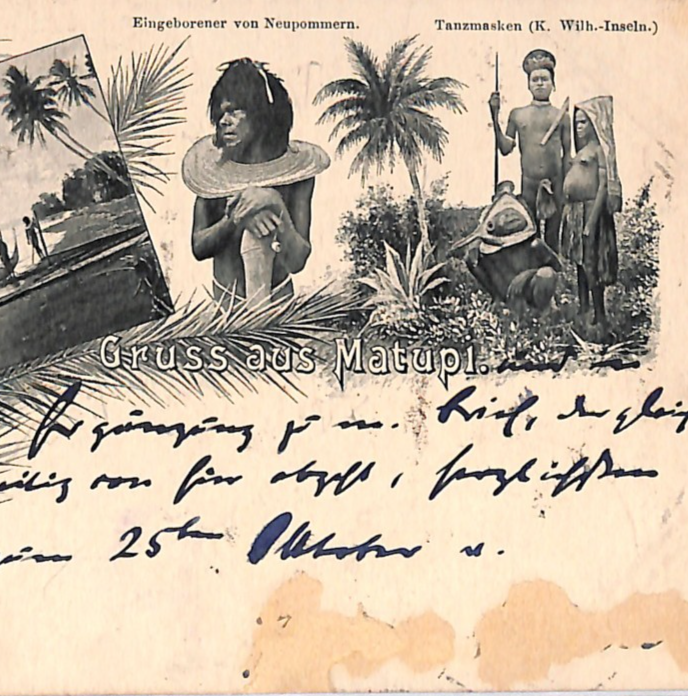 Eingeborener von Neupommern.
Tanzmasken (K. Wilh.-Inseln.)
Gruss aus Matupi. und in
Ergänzung zu m. Brief, der gleich
zeitig von hier abgeht, herzlichsten
zum 25ten Oktober u.